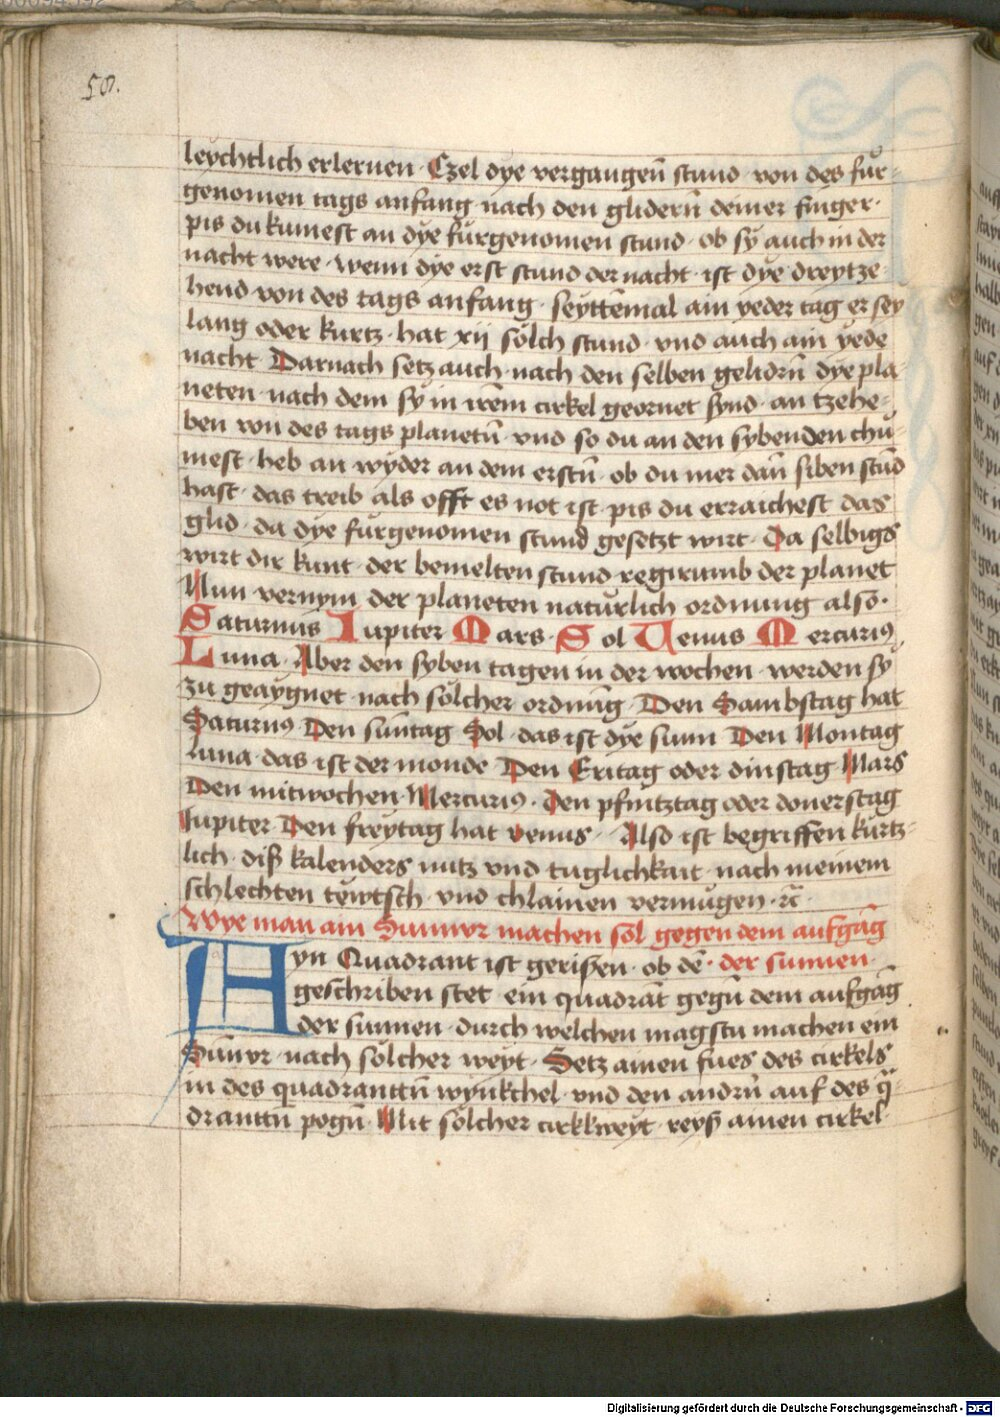 58.
leychtlich erlernen · Czel dye vergangeñ stund · von des fúr-
genomen tags anfang · nach den gliderñ deiner finger ·
pis du kumest an dye fúrgenomen stund · ob sy auch in der
nacht were · wenn dye erst stund der nacht · ist dye dreytze-
hend von des tags anfang · seyttēmal ain yeder tag er sey
lang oder kurtz · hat xij sölch stund · vnd auch ain yede
nacht Darnach setz auch · nach den selben gelidrñ dye pla-
neten · nach dem sy in irēm cirkel geornet synd · an tzehe-
ben von des tags planetñ · vnd so du an den sybenden chú-
mest · heb an wyder an dem erstñ · ob du mer dañ siben stūd
hast · das treib als offt es not ist · pis du erraichest das
glid · da dye fúrgenomen stund gesetzt wirt · Da selbigs
wirt dir kunt · der bemelten stund regirumb der planet
Nun vernym der planeten natúrlich ordnung also ·
Saturnus Iupiter Mars · Sol Venus Mercurius
Luna · Aber den syben tagen in der wochen · werden sy
zu geaygnet · nach sölcher ordnūg · Den Sambstag hat
Saturnus · Den sūntag Sol · das ist dye sunn Den Montag
luna · das ist der monde Den Eritag oder dinstag Mars
Den mitwochen · Mercurius · Den pfintztag oder donerstag
Iupiter · Den freytag hat venus · Also ist begriffen kúrtz-
lich · diß kalenders nutz vnd tuglichkait · nach meinem
schlechten tewtsch · vnd chlainen vermúgen · rc̄ ·
Wye man ain Sunnvr machen sol gegen dem aufgāg
Ayn Quadrant ist gerißen · ob dē · der sunnen ·
geschriben stet · ein quadrāt gegñ dem aufgāg
der sunnen · durch welchen magstu machen ein
Sūnvr · nach sölcher weyt · Setz ainen fues des cirkels
in des quadranttñ wynkchel · vnd den andrñ auf des q̄-
dranttñ pogñ · Mit sölcher cirkkweyt · reyß ainen cirkel
Digitalisierung gefördert durch die Deutsche Forschungsgemeinschaft - DFG